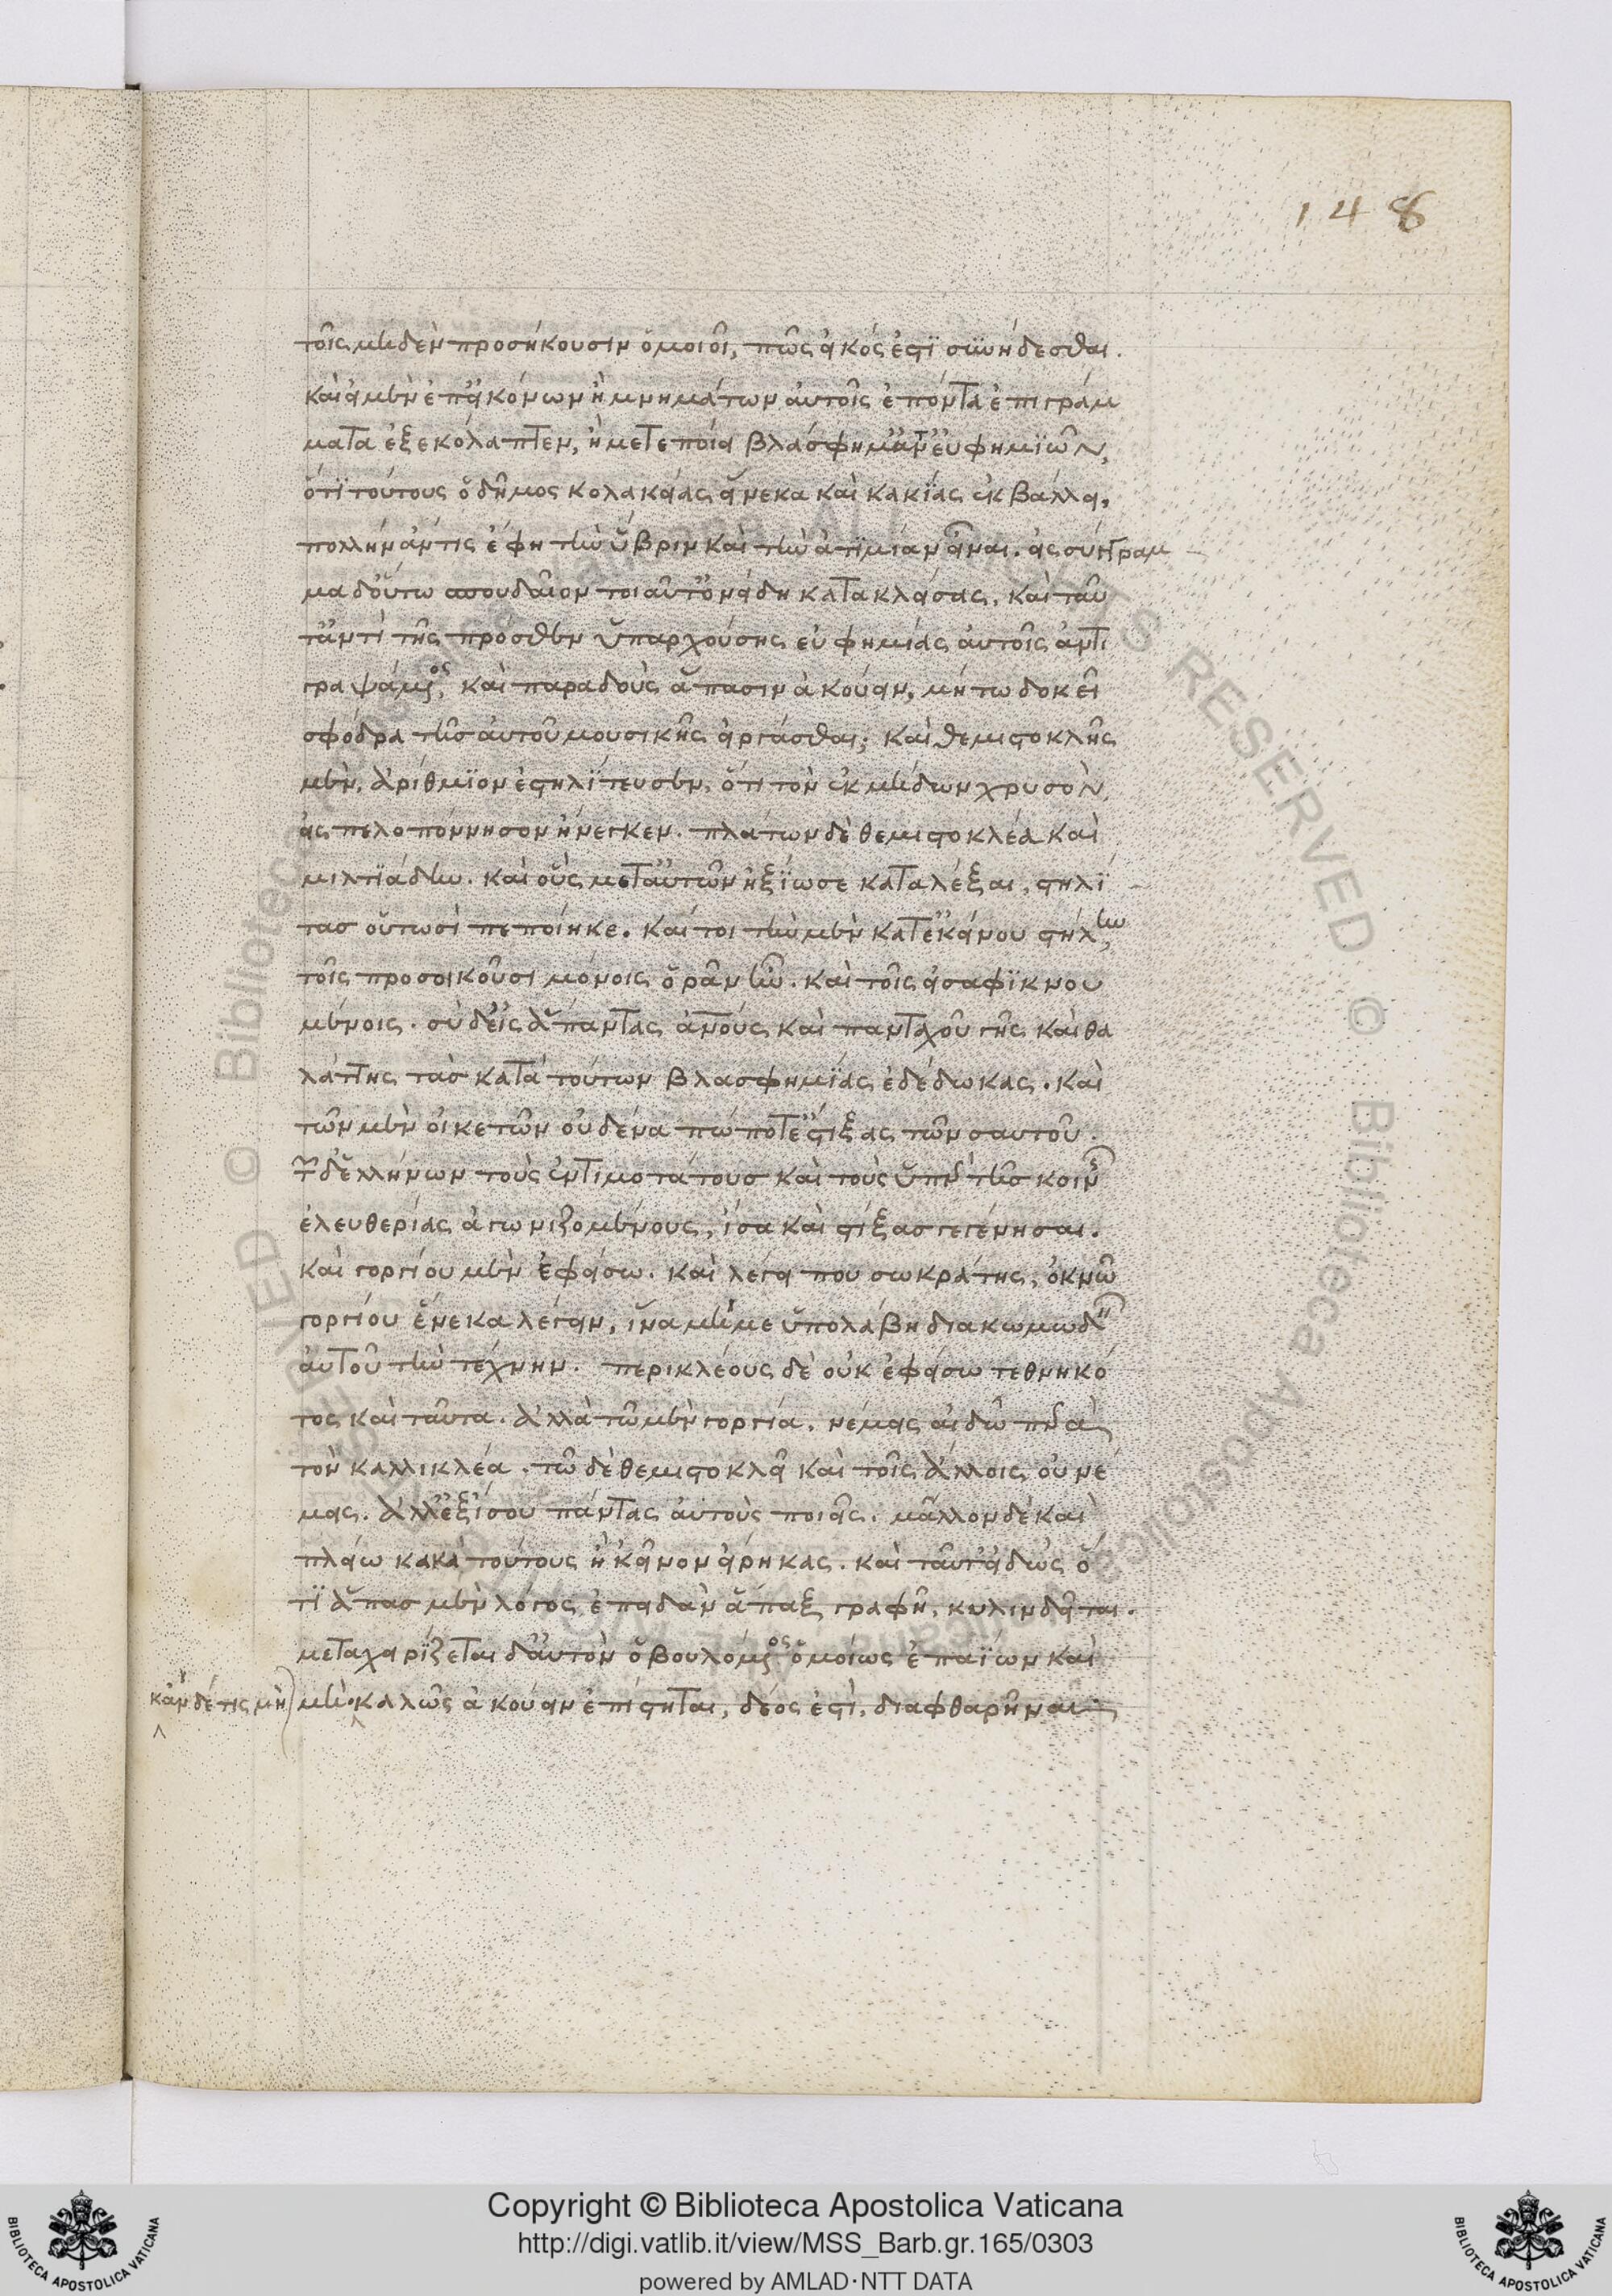 148
τοῖς μηδὲν προσήκουσιν ὅμοιοι, πῶς εἰκός ἐστϊ συνήδεσθαι.
καὶ εἰ μὲν ἐπ' εἰκόνων ἢ μνημάτων αὐτοῖς ἐπόντα ἐπιγράμ
ματα ἐξεκόλαπτεν, ἢ μετεποίει βλάσφημ' ἀντ' εὐφημϊῶν,
ὅτϊ τούτους ὁ δῆμος κολακείας εἵνεκα καὶ κακίας ἐκβάλλει,
πολλὴν ἄν τις ἔφη τὴν ὕβριν καὶ τὴν ἀτιμίαν εἶναι. εἰς σύγγραμ
μα δ' οὕτω σπουδαῖον τοιαῦτ' ὀνείδη κατακλείσας, καὶ ταῦ
τ' ἀντὶ τῆς πρόσθεν ὑπαρχούσης εὐφημίας αὐτοῖς ἀντι
γραψάμενος, καὶ παραδοὺς ἅπασιν ἀκούειν, μή τω δοκεῖ
σφόδρα τῆς αὐτοῦ μουσικῆς εἰργάσθαι; καὶ θεμιστοκλῆς
μὲν, ἀρίθμϊον ἐστηλΐτευσεν, ὅτι τὸν ἐκ μήδων χρυσὸν
εἰς πελοπόννησον ἤνεγκεν. πλάτων δὲ θεμιστοκλέα καὶ
μιλτϊάδην. καὶ οὓς μετ' αὐτῶν ἠξΐωσε καταλέξαι, στηλΐ
τας οὑτωσὶ πεποίηκε. καίτοι τὴν μὲν κατ' ἐκείνου στήλην
τοῖς προσοικοῦσι μόνοις ὁρᾶν ἦν. καὶ τοῖς εἰσαφϊκνου
μένοις. σὺ δ' εἰς ἅπαντας ἀνους καὶ πανταχοῦ γῆς καὶ θα
λάττης τὰς κατὰ τούτων βλασφημΐας ἐδέδωκας. καὶ
τῶν μὲν οἰκετῶν οὐδένα πώποτ' ἔστιξας τῶν σαυτοῦ.
τῶν δ' ἑλλήνων τοὺς ἐντιμοτάτους καὶ τοὺς ὑπὲρ τῆς κοινῆς
ἐλευθερίας ἀγωνιζομένους, ἴσα καὶ στίξας γεγένησαι.
καὶ γοργίου μὲν ἐφείσω. καὶ λέγει που σωκράτης, ὀκνῶ
γοργίου ἕνεκα λέγειν, ἵνα μή με ὑπολάβη διακωμωδεῖν
αὐτοῦ τὴν τέχνην. περικλέους δὲ οὐκ ἐφείσω τεθνηκό
τος καὶ ταῦτα. ἀλλὰ τῶ μὲν γοργία, νέμεις αἰδῶ παρὰ
τὸν καλλικλέα. τῶ δὲ θεμιστοκλεῖ καὶ τοῖς ἄλλοις οὐ νέ
μεις. ἀλλ' ἐξίσου πάντας αὐτοὺς ποιεῖς. μᾶλλον δὲ καὶ
πλείω κακὰ τούτους ἢ κεῖνον εἴρηκας. καὶ ταῦτ' εἰδὼς ὅ
τϊ ἅπας μὲν λόγος ἐπειδὰν ἅπαξ γραφῆ, κυλινδεῖται.
μεταχειρΐζεται δ' αὐτὸν ὁ βουλόμενος ὁμοίως ἐπαΐων καὶ
κἂν δέ τις μὴ
μή. καλῶς ἀκούειν ἐπίστηται, δέος ἐστὶ, διαφθαρῆναι
Copyright © Biblioteca Apostolica Vaticana
http://digi.vatlib.it/view/MSS_Barb.gr.165/0303
powered by AMLAD·NTT DATA